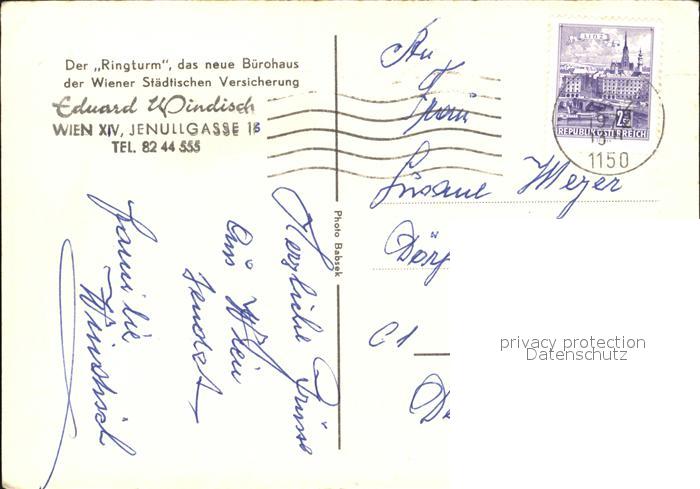 Der „Ringturm“, das neue Bürohaus
der Wiener Städtischen Versicherung
Eduard Windisch
WIEN XIV, JENULLGASSE 18
TEL. 82 44 555
Herzliche Grüsse
aus Wien
sendet
Familie
Windisch
Photo Babsek
LINZ
2
REPUBLIK ÖSTERREICH
1150
An
Susanne Meyer
Dörf
C1
De
privacy protection
Datenschutz